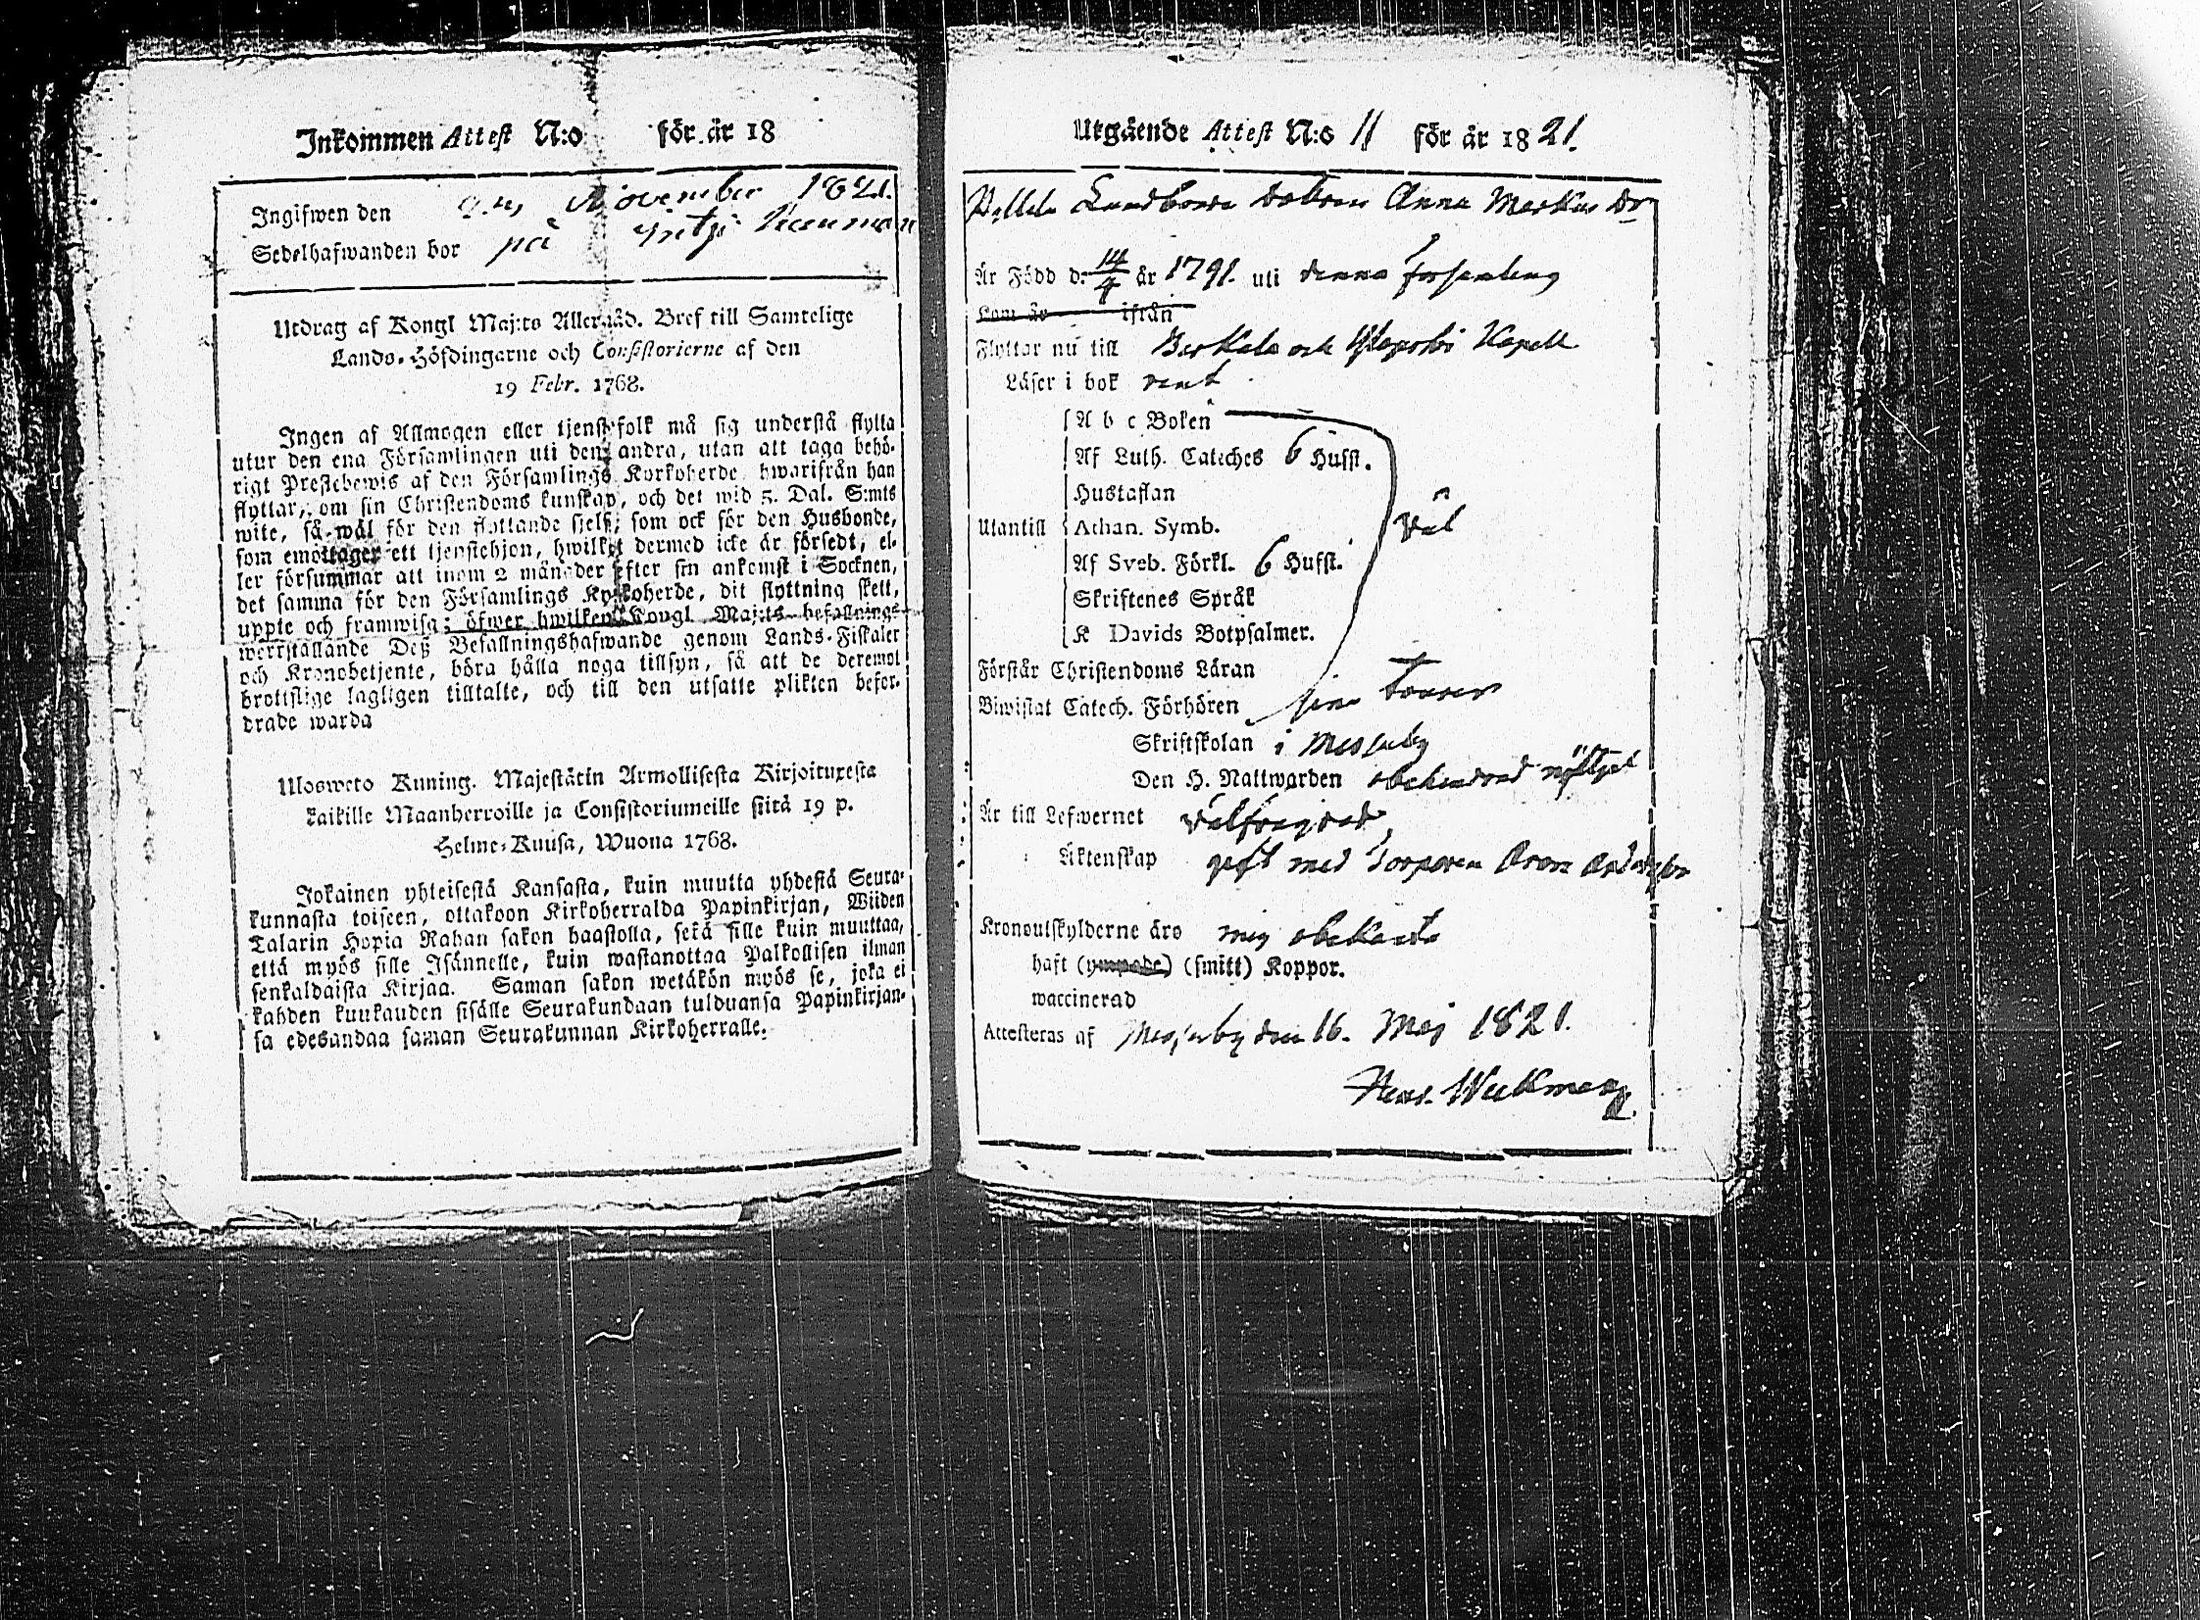 Inkommen Attest N:o för år 18
Ingifwen den November 1821.
Sedelhafwanden bor på
Utdrag af Kongl Maj:ts Allernåd. Bref till Samtelige
Lands-Höfdingarne och Consistorierne af den
19 Febr. 1768.
Ingen af Allmogen eller tjenstefolk må sig understå flytta
utur den ena Församlingen uti den andra, utan att taga behö-
rigt Prestebewis af den Församlings Kyrkoherde, hwarifrån han
flyttar, om sin Christendoms kunskap, och det wid 5. Dal. S:mts
wite, så wäl för den flyttande sjelf, som ock för den Husbonde,
som emottager ett tjenstehjon, hwilket dermed icke är försedt, el-
ler försummar att inom 2 månader efter sin ankomst i Socknen,
det samma för den Församlings Kyrkoherde, dit flyttning skett,
uppte och framwisa; öfwer hwilken Kongl Maj:ts befallnings
werkställande Deß Befallningshafwande genom Lands-Fiskaler
och Kronobetjente, böra hålla noga tillsyn, så att de deremot
brottslige lagligen tilltalte, och till den utsatte plikten befor-
drade warda
Ulosweto Kuning. Majestätin Armollisesta Kirjoituxesta
kaikille Maanherroille ja Consistoriumeille siitä 19 p.
Helme-Kuusa, Wuona 1768.
Jokainen yhteisestä Kansasta, kuin muutta yhdestä Seura-
kunnasta toiseen, ottakoon Kirkoherralda Papinkirjan, Wiiden
Talarin Hopia Rahan sakon haastolla, sekä sille kuin muuttaa,
että myös sille Isännelle, kuin wastanottaa Palkollisen ilman
senkaldaista Kirjaa. Saman sakon wetäkön myös se, joka ei
kahden kuukauden sisälle Seurakundaan tulduansa Papinkirjan-
sa edesandaa saman Seurakunnan Kirkoherralle.
Utgående Attest N:o 11 för år 1821.
Anna Markus Dr
Är Född d. 14/4 år 1791. uti denna församling
som är ifrån
Flyttar nu till Birkala och Kapell
Läser i bok rent
A b c Boken
Af Luth. Cateches 6 Hufst.
Hustaflan
Utantill Athan. Symb. väl
Af Sveb. Förkl. 6 Hufst.
Skriftenes Språk
K Davids Botpsalmer.
Förstår Christendoms Läran
Biwistat Catech. Förhören sina
Skriftskolan i Messuby
Den H. Nattwarden obehindrad nyttjat
Är till Lefwernet välfrägdad,
Äktenskap gift med Torparen
Kronoutskylderne äro mig obekante
haft (ympade) (smitt) Koppor.
waccinerad
Attesteras af Messuby den 16. Maj 1821.